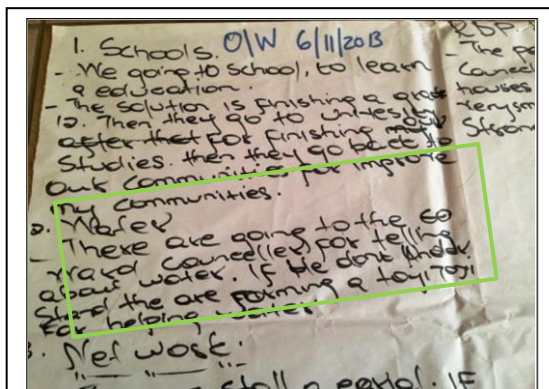 1. Schools. O/W 6/11/2013
- We going to school, to learn
a education.
- The solution is finishing a grade
12. Then they go to
after that for finishing
studies. then they go back to
our communities for improve
my communities.
2. Water
- There are going to the 60
ward councelles for telling
about water. If he dont under
stand the are forming a toyi toyi
for helping water.
3. Net work.
RDP
- The pe
Councel
houses
Strong